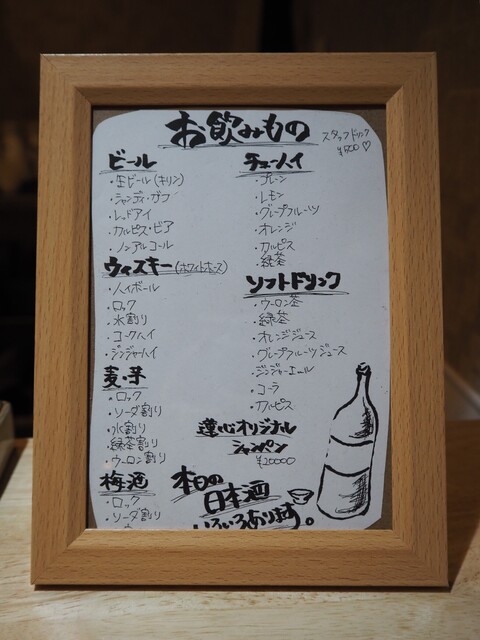 お飲みもの
スタッフドリンク
¥800♡
ビール
・生ビール(キリン)
・シャンディ・ガフ
・レッドアイ
・カルピス・ビア
・ノンアルコール
ウィスキー(ホワイトホース)
・ハイボール
・ロック
・水割り
・コークハイ
・ジンジャーハイ
麦・芋
・ロック
・ソーダ割り
・水割り
・緑茶割り
・ウーロン割り
梅酒
・ロック
・ソーダ割り
チューハイ
・プレーン
・レモン
・グレープフルーツ
・オレンジ
・カルピス
・緑茶
ソフトドリンク
・ウーロン茶
・緑茶
・オレンジジュース
・グレープフルーツジュース
・ジンジャーエール
・コーラ
・カルピス
オリジナル
シャンパン
¥20000
本日の
日本酒
いろいろあります。